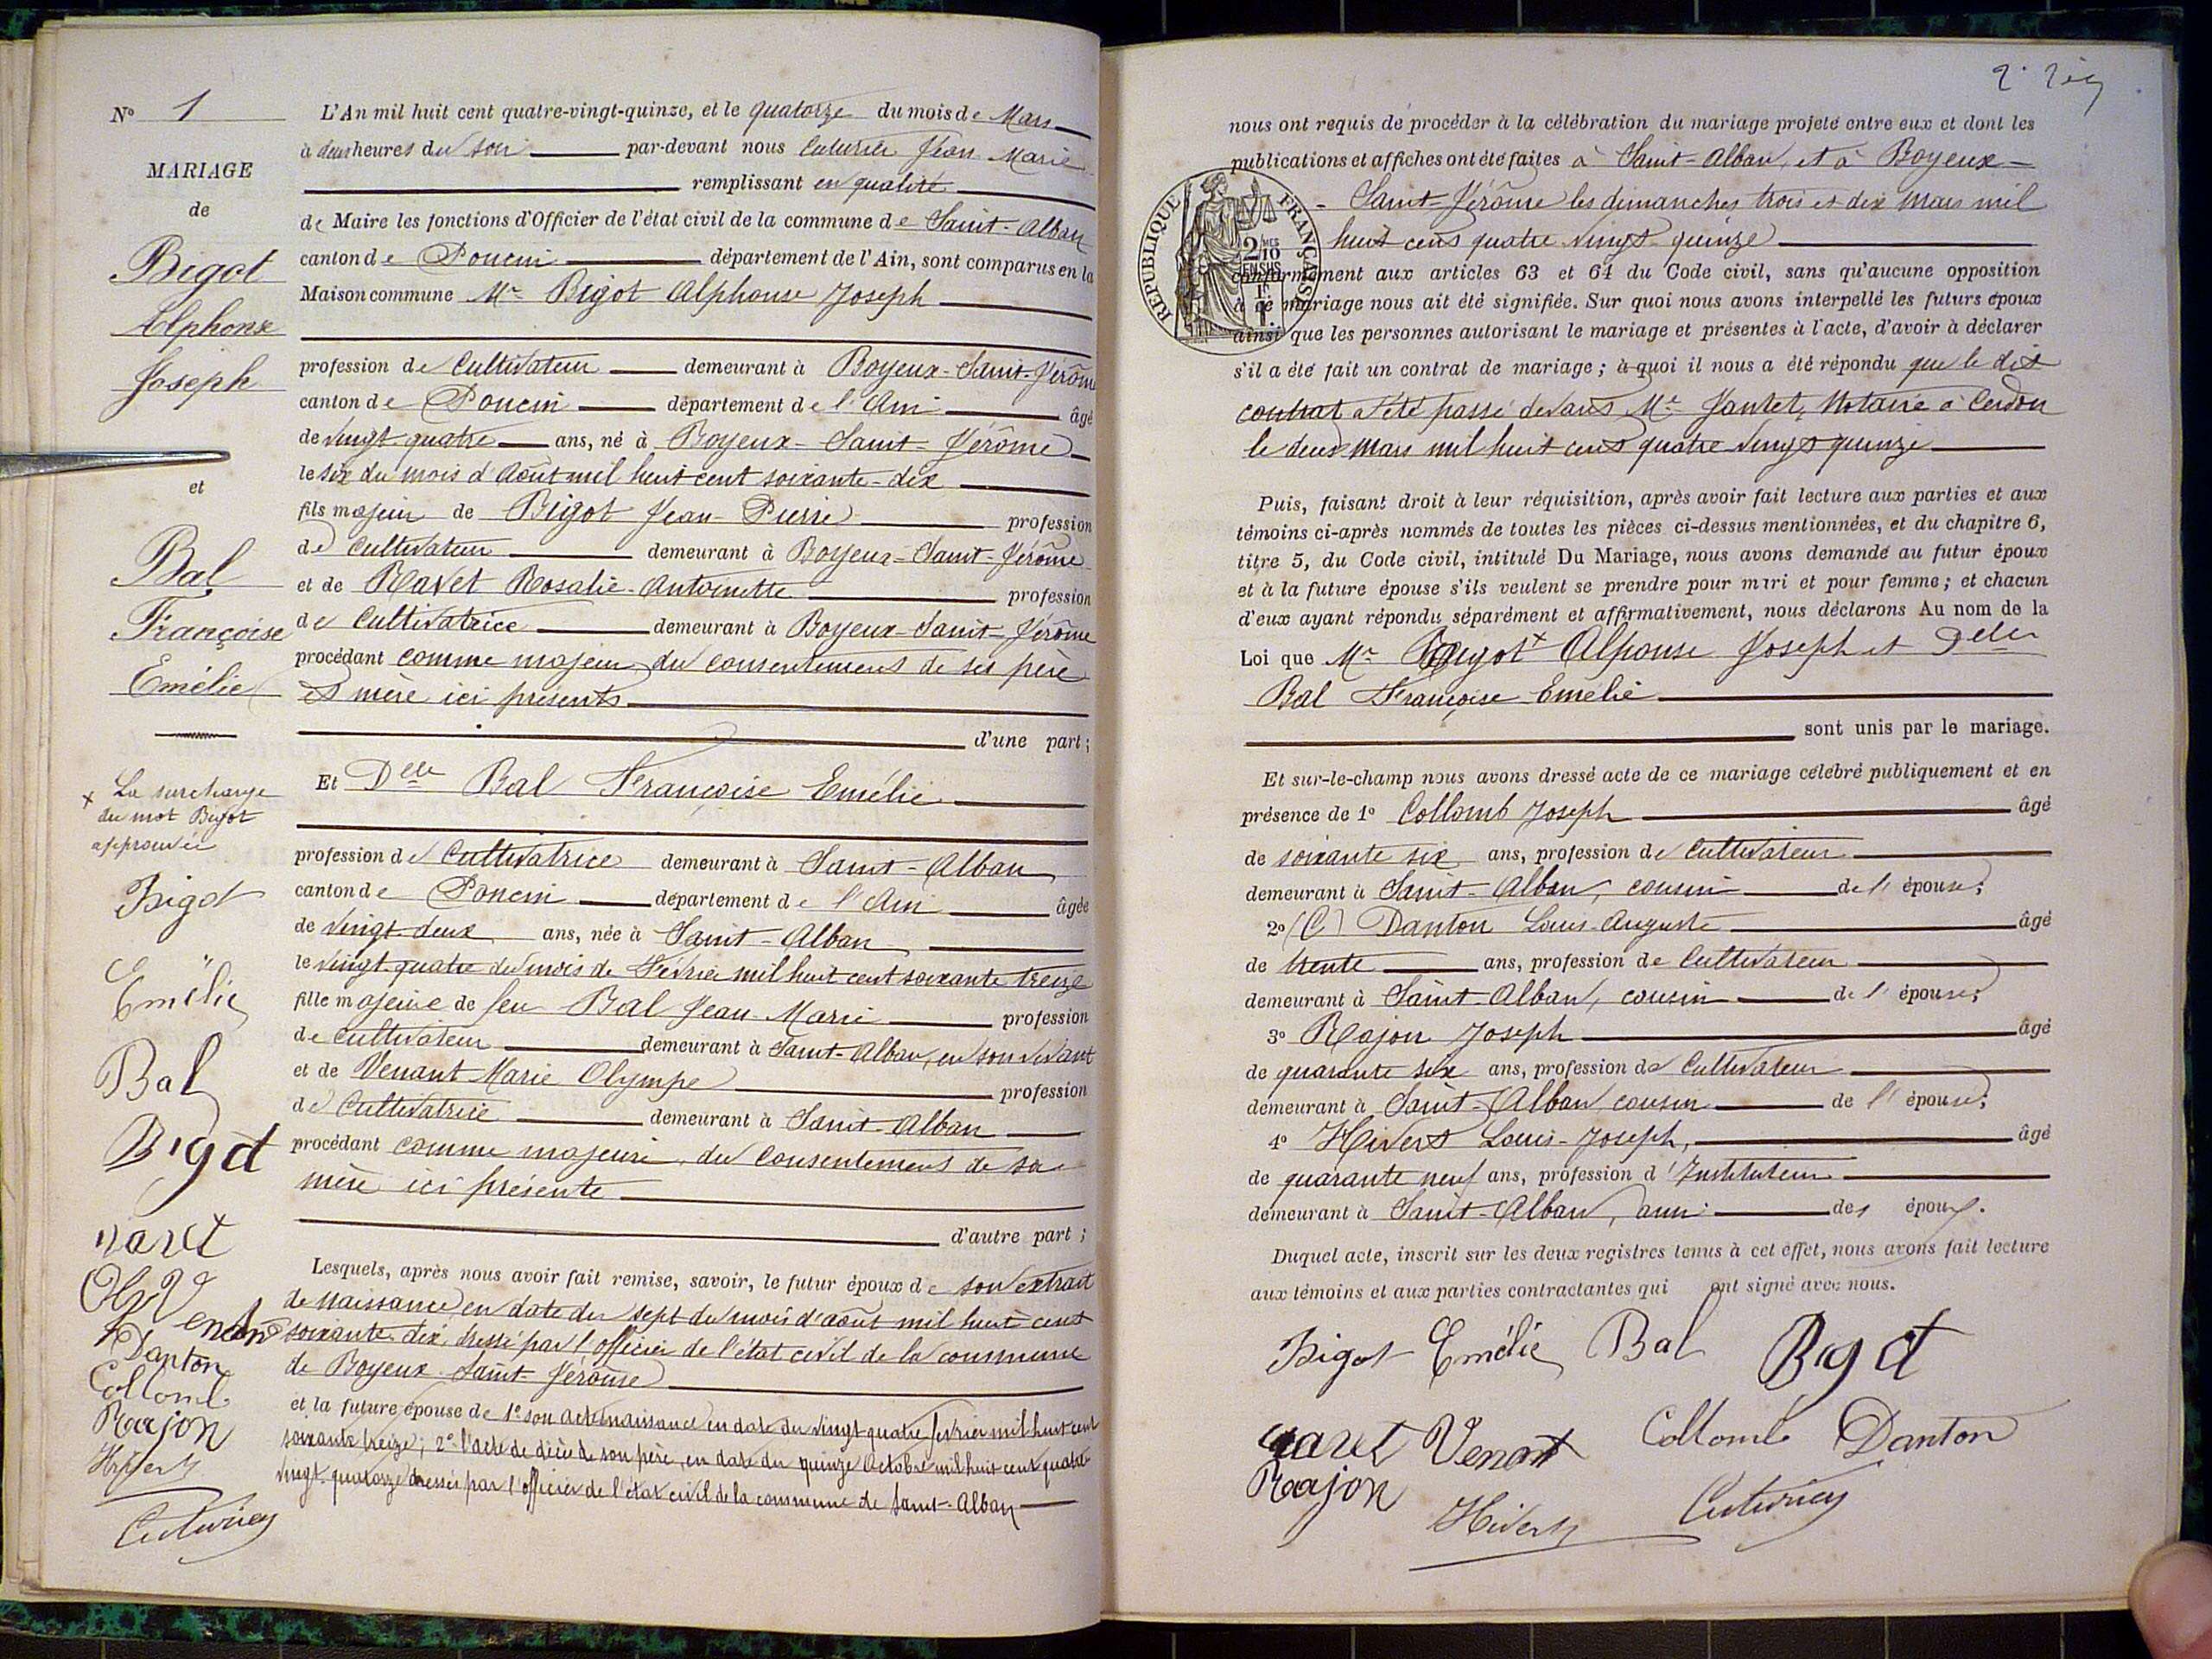 N° 1
MARIAGE
de
Bigot
Alphonse
Joseph
et
Bal
Françoise
Emélie
x La surcharge
du mot Bigot
approuvée
Bigot
Emélie
Bal
Bigot
Danton
Collomb
Rajon
Hivert
L'An mil huit cent quatre-vingt-quinze, et le quatorze du mois de Mars
à deux heures du soir par-devant nous Jean Marie
remplissant en qualité
de Maire les fonctions d'Officier de l'état civil de la commune de Saint-Alban
canton de Poncin département de l'Ain, sont comparus en la
Maison commune Mr Bigot Alphonse Joseph
profession de Cultivateur demeurant à Boyeux-Saint-Jérôme
canton de Poncin département de l'Ain âgé
de vingt-quatre ans, né à Boyeux-Saint-Jérôme
le six du mois d'Août mil huit cent soixante-dix
fils majeur de Bigot Jean-Pierre profession
de Cultivateur demeurant à Boyeux-Saint-Jérôme
et de Ravet Rosalie-Antoinette profession
de Cultivatrice demeurant à Boyeux-Saint-Jérôme
procédant comme majeur, du consentement de ses père
et mère ici présents
d'une part;
Et Delle Bal Françoise Emélie
profession de Cultivatrice demeurant à Saint-Alban
canton de Poncin département de l'Ain âgée
de vingt-deux ans, née à Saint-Alban
le vingt-quatre du mois de Février mil huit cent soixante treize
fille majeure de feu Bal Jean-Marie profession
de Cultivateur demeurant à Saint-Alban, en son vivant
et de Venant Marie Olympe profession
de Cultivatrice demeurant à Saint-Alban
procédant comme majeure, du consentement de sa
mère ici présente
d'autre part;
Lesquels, après nous avoir fait remise, savoir, le futur époux de son extrait
de naissance en date du sept du mois d'août mil huit cent
soixante-dix dressé par l'officier de l'état civil de la commune
de Boyeux-Saint-Jérôme
et la future épouse de 1° son acte naissance en date du vingt quatre février mil huit cent
soixante treize; 2° l'acte de décès de son père, en date du quinze Octobre mil huit cent quatre-
vingt-quatorze dressés par l'officier de l'état civil de la commune de Saint-Alban
nous ont requis de procéder à la célébration du mariage projeté entre eux et dont les
publications et affiches ont été faites à Saint-Alban, et à Boyeux-
-Saint-Jérôme les dimanches trois et dix Mars mil
huit cent quatre vingt quinze
RÉPUBLIQUE FRANÇAISE
conformément aux articles 63 et 64 du Code civil, sans qu'aucune opposition
à ce mariage nous ait été signifiée. Sur quoi nous avons interpellé les futurs époux
ainsi que les personnes autorisant le mariage et présentes à l'acte, d'avoir à déclarer
s'il a été fait un contrat de mariage; à quoi il nous a été répondu que le dit
contrat a été passé devant Me Jantet, Notaire à Cerdon
le deux Mars mil huit cent quatre vingt quinze
Puis, faisant droit à leur réquisition, après avoir fait lecture aux parties et aux
témoins ci-après nommés de toutes les pièces ci-dessus mentionnées, et du chapitre 6,
titre 5, du Code civil, intitulé Du Mariage, nous avons demandé au futur époux
et à la future épouse s'ils veulent se prendre pour mari et pour femme; et chacun
d'eux ayant répondu séparément et affirmativement, nous déclarons Au nom de la
Loi que Mr Bigot x Alphonse Joseph et Delle
Bal Françoise Emélie
sont unis par le mariage.
Et sur-le-champ nous avons dressé acte de ce mariage célébré publiquement et en
présence de 1° Collomb Joseph âgé
de soixante six ans, profession de Cultivateur
demeurant à Saint-Alban, cousin de l'épouse;
2° (C) Danton Louis-Auguste âgé
de trente ans, profession de Cultivateur
demeurant à Saint-Alban, cousin de l'épouse;
3° Rajon Joseph âgé
de quarante six ans, profession de Cultivateur
demeurant à Saint-Alban, cousin de l'épouse;
4° Hivert Louis-Joseph, âgé
de quarante neuf ans, profession d'Instituteur
demeurant à Saint-Alban, ami des époux.
Duquel acte, inscrit sur les deux registres tenus à cet effet, nous avons fait lecture
aux témoins et aux parties contractantes qui ont signé avec nous.
Bigot Emélie Bal Bigot
Venant Collomb Danton
Rajon Hivert